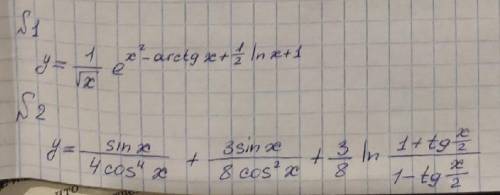 №1
y = 1/√x e^(x² - arctg x + 1/2 ln x + 1)
№2
y = sin x / 4 cos⁴ x + 3 sin x / 8 cos² x + 3/8 ln (1 + tg x/2) / (1 - tg x/2)